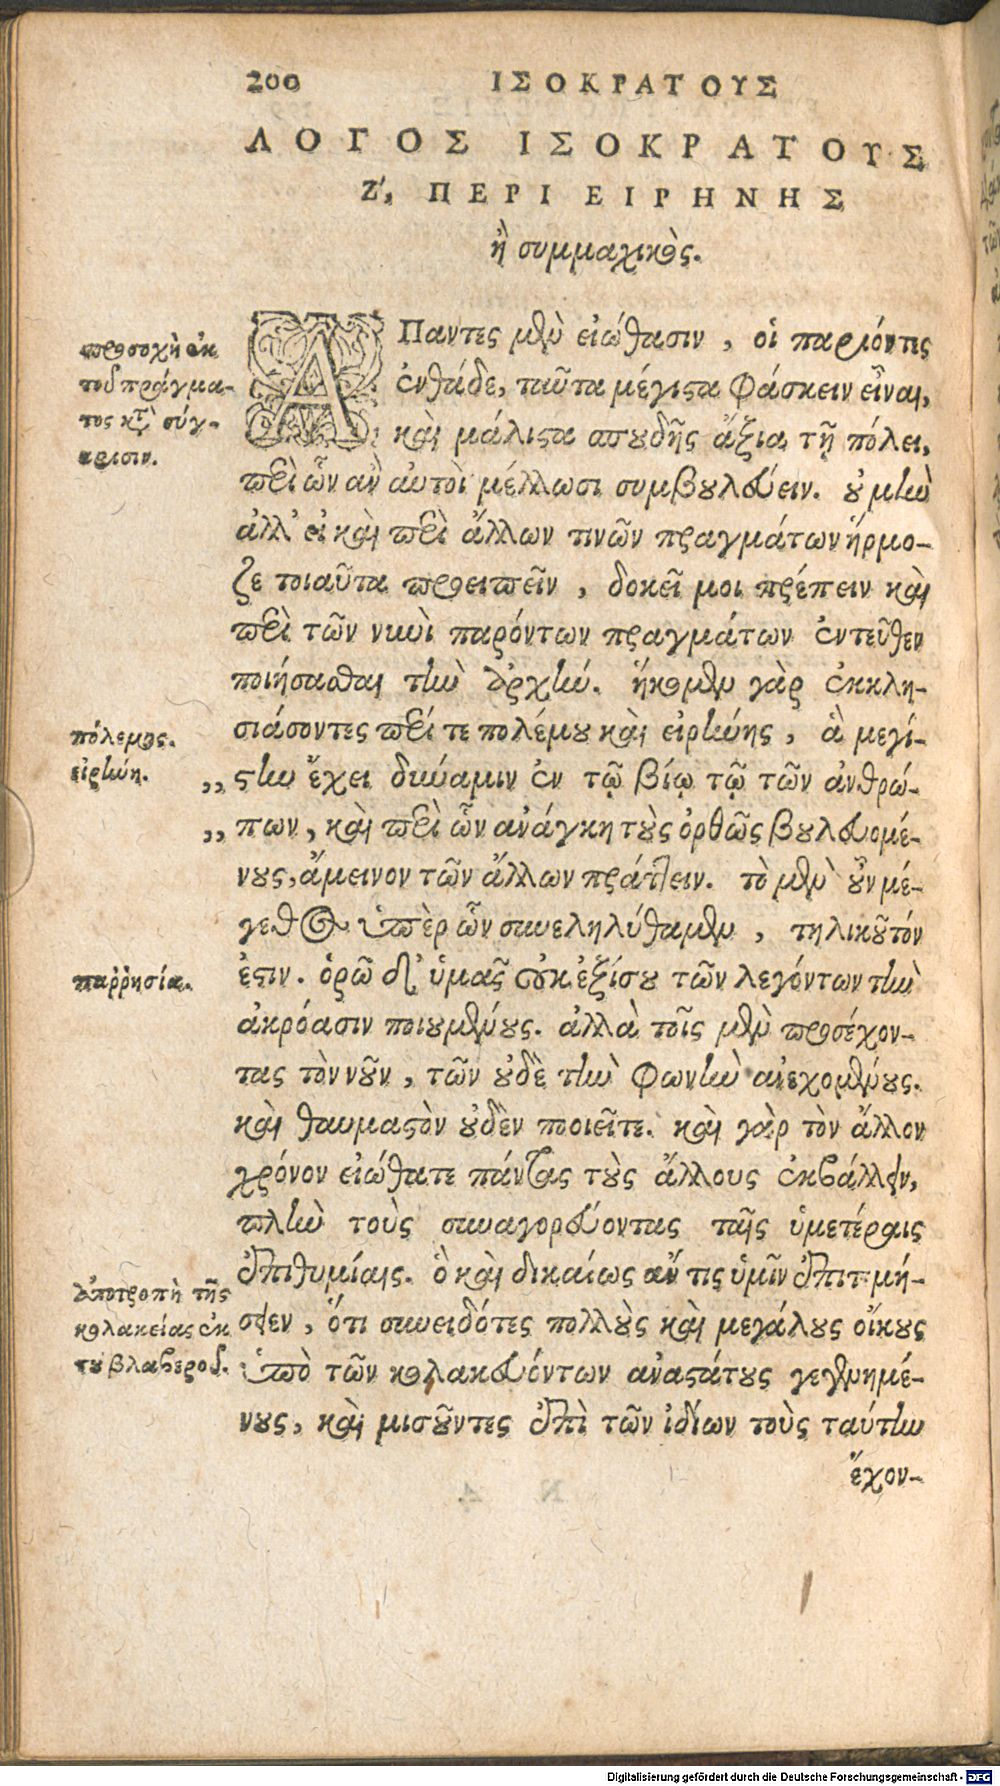 200 ΙΣΟΚΡΑΤΟΥΣ
ΛΟΓΟΣ ΙΣΟΚΡΑΤΟΥΣ
Ζ', ΠΕΡΙ ΕΙΡΗΝΗΣ
ἢ συμμαχικὸς.
προσοχὴ ἐκ
τοῦ πράγμα-
τος κτ̀ σύγ-
κρισιν.
ΑΠαντες μὲν εἰώθασιν, οἱ παριόντες
ἐνθάδε, ταῦτα μέγιστα φάσκειν εἶναι,
καὶ μάλιστα σπουδῆς ἄξια τῇ πόλει,
περὶ ὧν ἂν αὐτοὶ μέλλωσι συμβουλεύειν. οὐ μὴν
ἀλλ' εἰ καὶ περὶ ἄλλων τινῶν πραγμάτων ἥρμο-
ζε τοιαῦτα προειπεῖν, δοκεῖ μοι πρέπειν καὶ
περὶ τῶν νυνὶ παρόντων πραγμάτων ἐντεῦθεν
ποιήσασθαι τὴν ἀρχήν. ἥκομεν γὰρ ἐκκλη-
σιάσοντες περί τε πολέμου καὶ εἰρήνης, ἃ μεγί-
πόλεμος.
εἰρήνη.
„ στην ἔχει δύναμιν ἐν τῷ βίῳ τῷ τῶν ἀνθρώ-
„ πων, καὶ περὶ ὧν ἀνάγκη τοὺς ὀρθῶς βουλευομέ-
νους, ἄμεινον τῶν ἄλλων πράττειν. τὸ μὲν οὖν μέ-
γεθος ὑπὲρ ὧν συνεληλύθαμεν, τηλικοῦτόν
παῤῥησία.
ἐστιν. ὁρῶ δ' ὑμᾶς οὐκ ἐξίσου τῶν λεγόντων τὴν
ἀκρόασιν ποιουμένους. ἀλλὰ τοῖς μὲν προσέχον-
τας τὸν νοῦν, τῶν οὐδὲ τὴν φωνὴν ἀνεχομένους.
καὶ θαυμαστὸν οὐδὲν ποιεῖτε. καὶ γὰρ τὸν ἄλλον
χρόνον εἰώθατε πάντας τοὺς ἄλλους ἐκβάλλειν,
πλὴν τοὺς συναγορεύοντας ταῖς ὑμετέραις
ἐπιθυμίαις. ὃ καὶ δικαίως ἄν τις ὑμῖν ἐπιτιμή-
ἀποτροπὴ τῆς
κολακείας ἐκ
του βλαβεροῦ.
σειεν, ὅτι συνειδότες πολλοὺς καὶ μεγάλους οἴκους
ὑπὸ τῶν κολακευόντων ἀναστάτους γεγενημέ-
νους, καὶ μισοῦντες ἐπὶ τῶν ἰδίων τοὺς ταύτην
ἔχον-
Digitalisierung gefördert durch die Deutsche Forschungsgemeinschaft - DFG